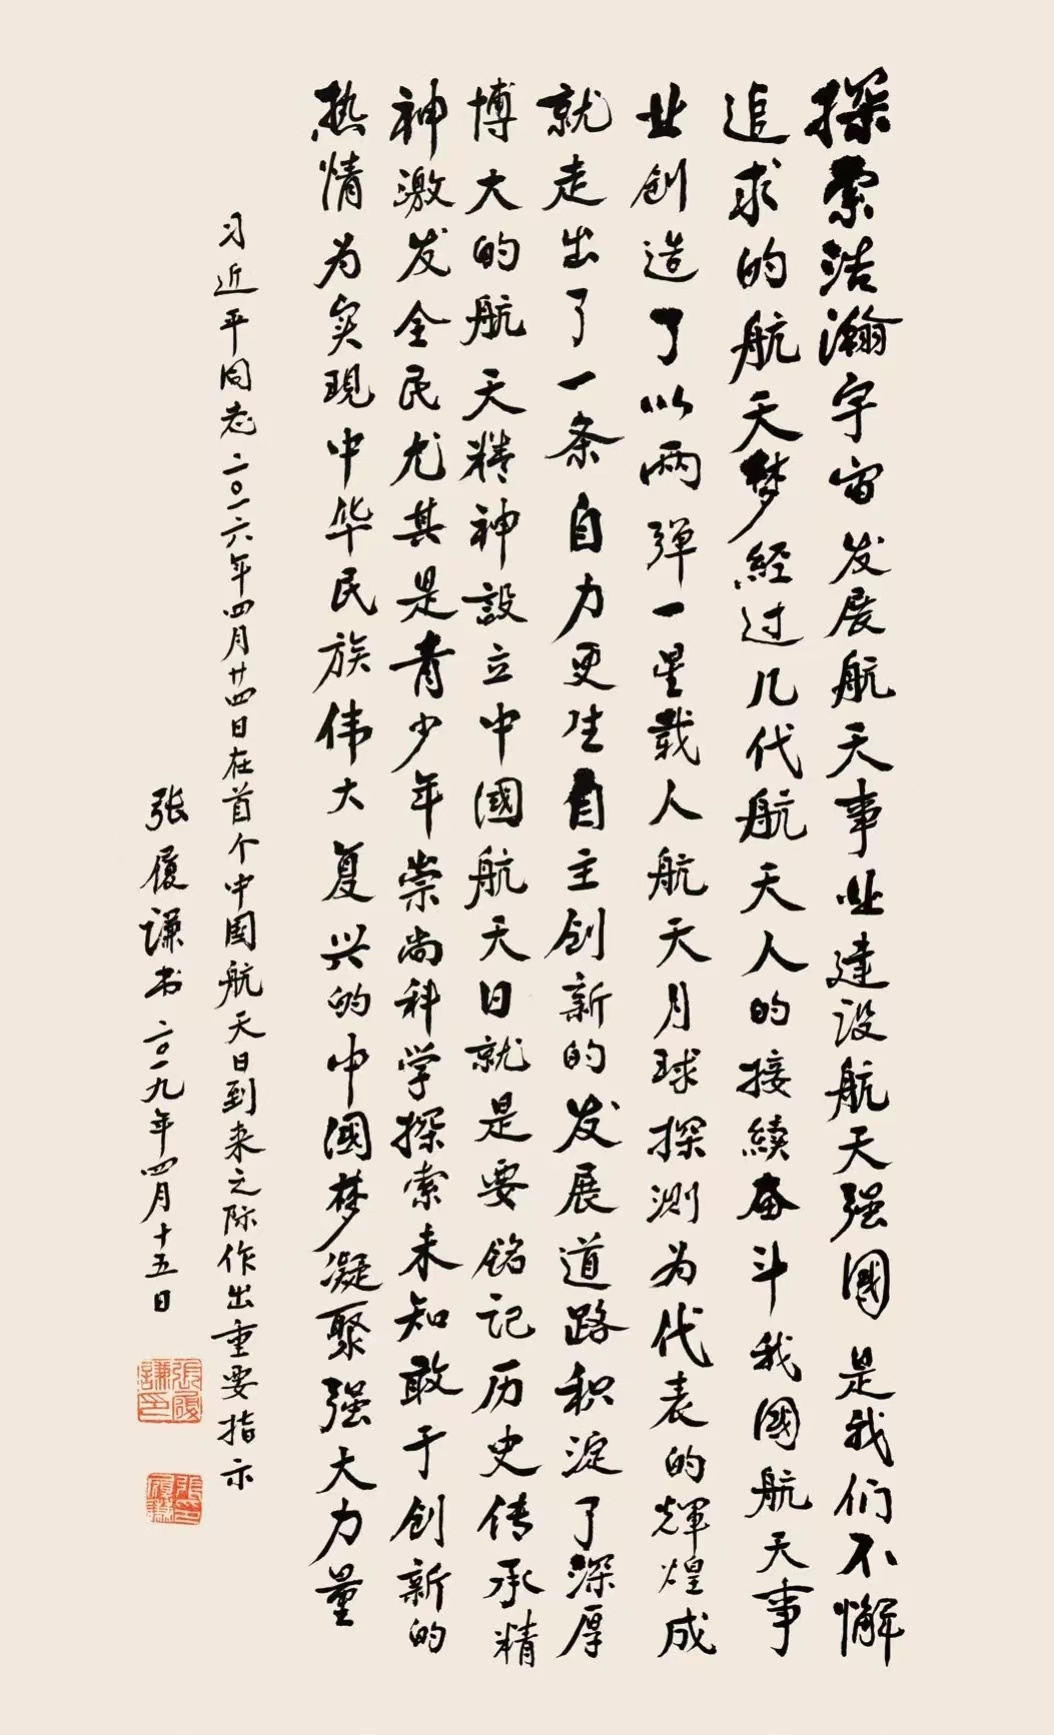 探索浩瀚宇宙发展航天事业建设航天强國是我们不懈
追求的航天梦經过几代航天人的接續奋斗我國航天事
业创造了以兩弹一星载人航天月球探测为代表的辉煌成
就走出了一条自力更生自主创新的发展道路积淀了深厚
博大的航天精神設立中國航天日就是要铭记历史传承精
神激发全民尤其是青少年崇尚科学探索未知敢于创新的
热情为实现中华民族伟大复兴的中國梦凝聚强大力量
习近平同志二〇一六年四月廿四日在首个中国航天日到来之际作出重要指示
张履谦书二〇一九年四月十五日
張履謙印
張履謙印